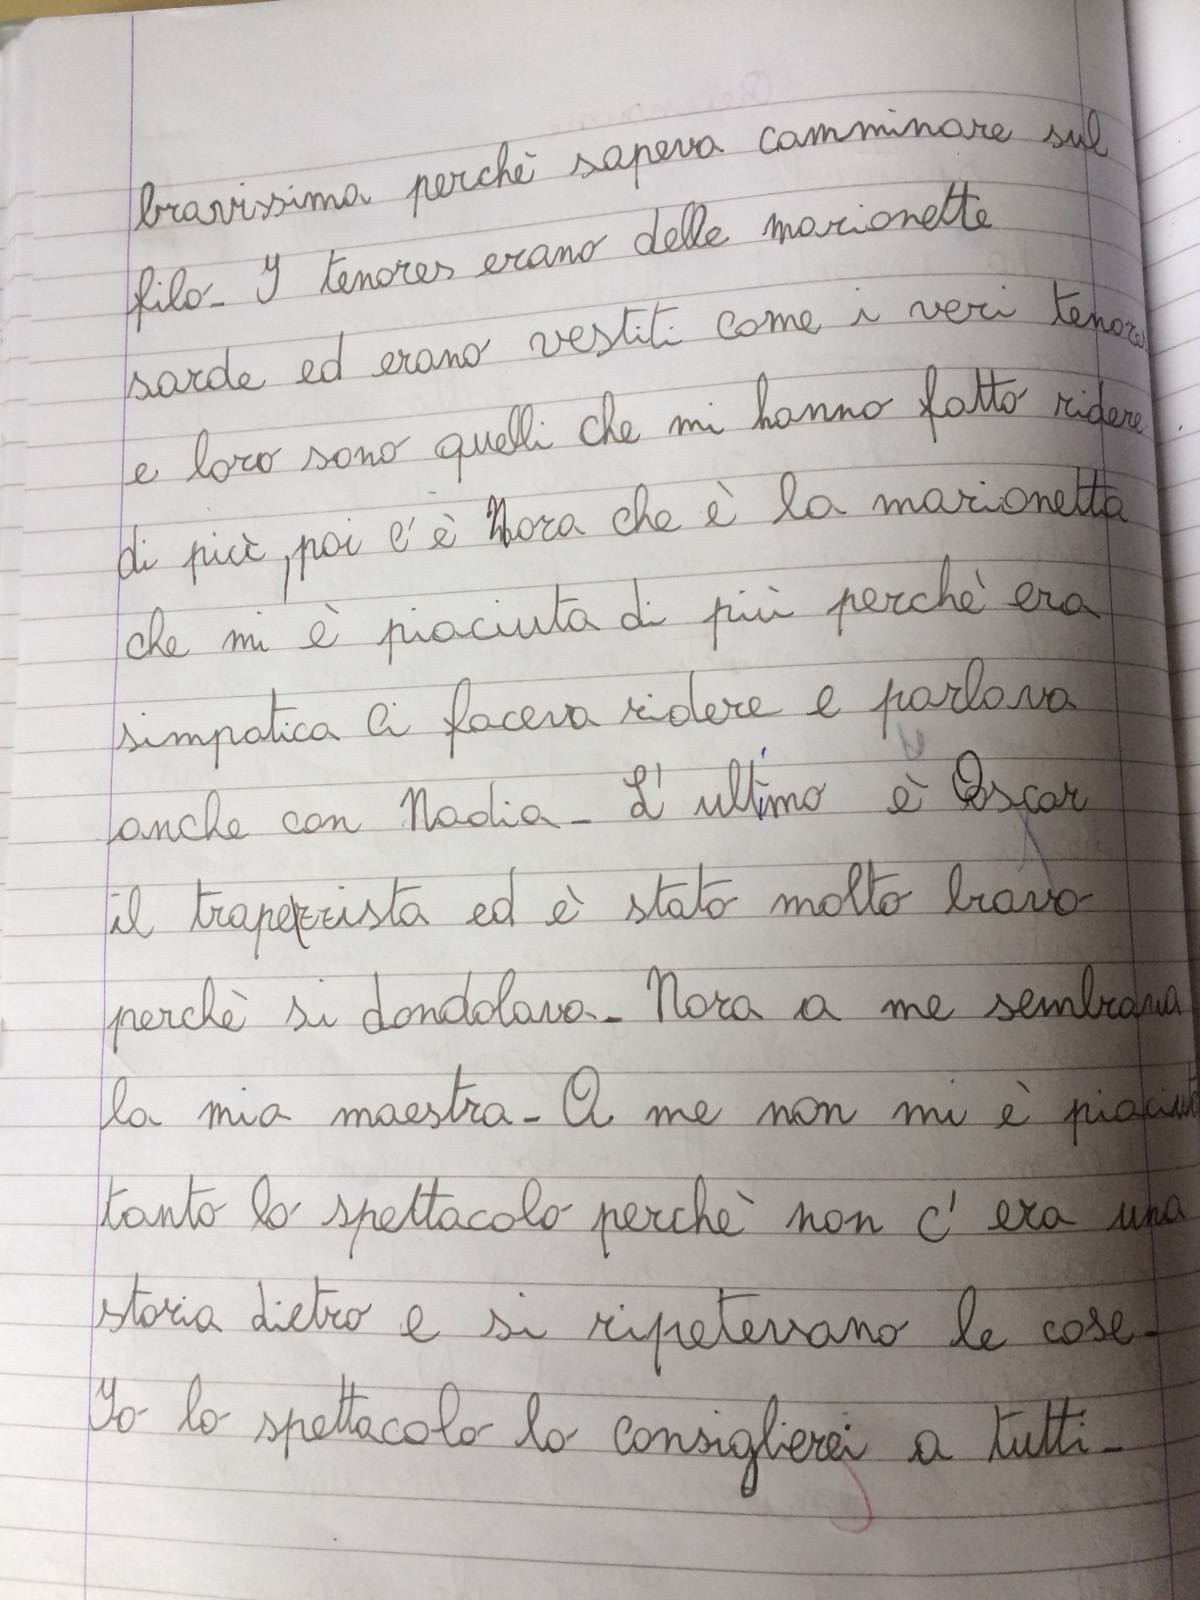 bravissima perchè sapeva camminare sul
filo. I tenores erano delle marionette
sarde ed erano vestiti come i veri tenores
e loro sono quelli che mi hanno fatto ridere
di più, poi c'è Nora che è la marionetta
che mi è piaciuta di più perchè era
simpatica ci faceva ridere e parlava
anche con Nadia. L'ultimo è Oscar
il trapezzista ed è stato molto bravo
perchè si dondolava. Nora a me sembrava
la mia maestra. A me non mi è piaciuto
tanto lo spettacolo perchè non c'era una
storia dietro e si ripetevano le cose.
Io lo spettacolo lo consiglierei a tutti.